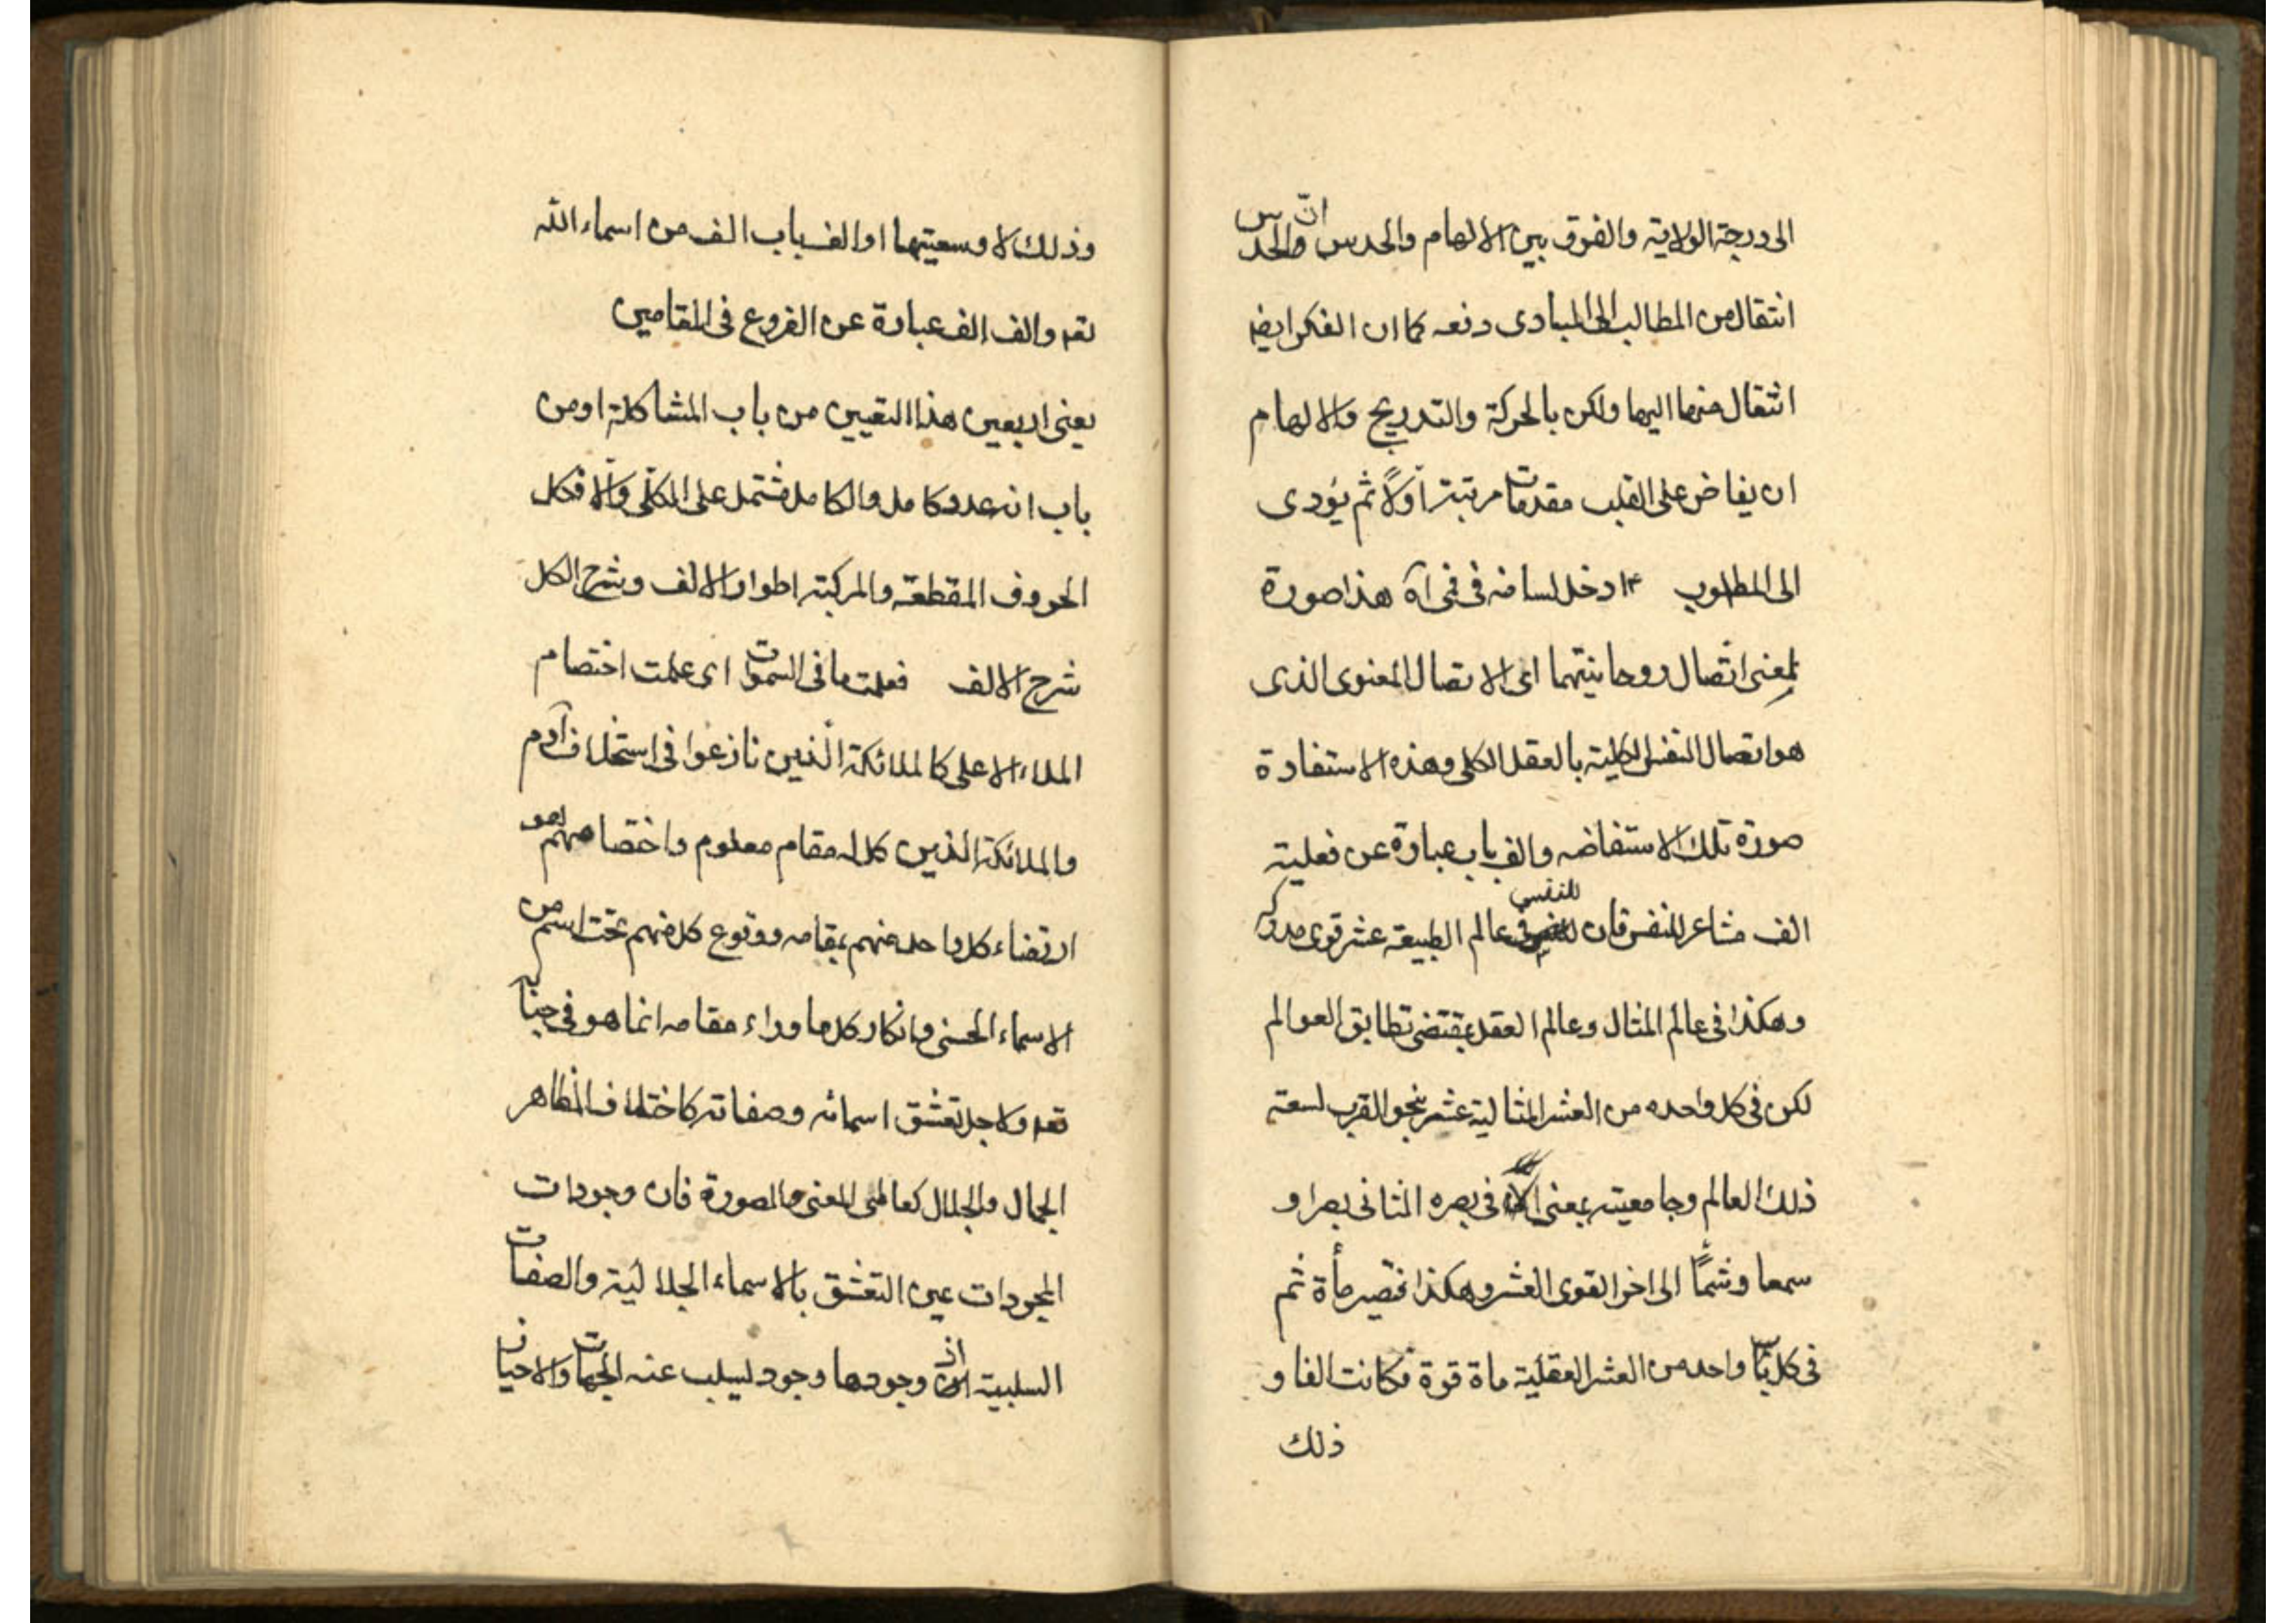 الى درجة الولاية والفرق بين الالهام والحدس انّ الحدس
انتقال من المطالب الى المبادى دفعه كما ان الفكر ايضا
انتقال منها اليها ولكن بالحركة والتدريج والالهام
ان يفاض على القلب مقدمات مرتبة اوّلاً ثم يؤدى
الى المطلوب ادخل لسانه فى فى اه هذا صورة
لمعنى اتصال روحانيتهما اى الاتصال المعنوى الذى
هو اتصال النفس الكلية بالعقل الكلى وهذه الاستفادة
صورة تلك الاستفاضه والف باب عبارة عن فعلية
الف مشاعر للنفس فان للنفس فى عالم الطبيعة عشر قوى مدركة
وهكذا فى عالم المثال وعالم العقل بمقتضى تطابق العوالم
لكن فى كل واحده من العشر المثالية عشر بنحو القرب لسعة
ذلك العالم وجامعيته بمعنى ان فى بصره الثانى بصرا و
سمعا وشمّاً الى اخر القوى العشر وهكذا فتصير مأة ثم
فى كل واحده من العشر العقلية ماة قوة فكانت الفا و
ذلك
وذلك لاوسعيتها او الف باب الف من اسماء الله
تعه والف الف عبارة عن الفروع فى المقامين
يعنى اربعين هذا التعيين من باب المشاكلة او من
باب انه عدد كامل والكامل مشتمل على الكلّى والّا فكل
الحروف المقطعة والمركبة اطوار الالف وشرح الكل
شرح الالف فعلمت ما فى السموات اى علمت اختصام
الملاء الاعلى كالملائكة الّذين نازعوا فى استخلاف آدم
والملائكة الذين كل له مقام معلوم واختصامهم هو
ارتضاء كل واحد منهم بمقامه ووقوع كل منهم تحت اسم من
الاسماء الحسنى وانكار كل ما وراء مقامه انما هو فى
تعه ولاجل تعشق اسمائه وصفاته كاختلاف المظاهر
الجمال والجلال كعالمى المعنى والصورة فان وجودات
المجردات عين التعشق بالاسماء الجلالية والصفات
السلبية اذ وجودها وجود ليسلب عنه الجهات والاحيان